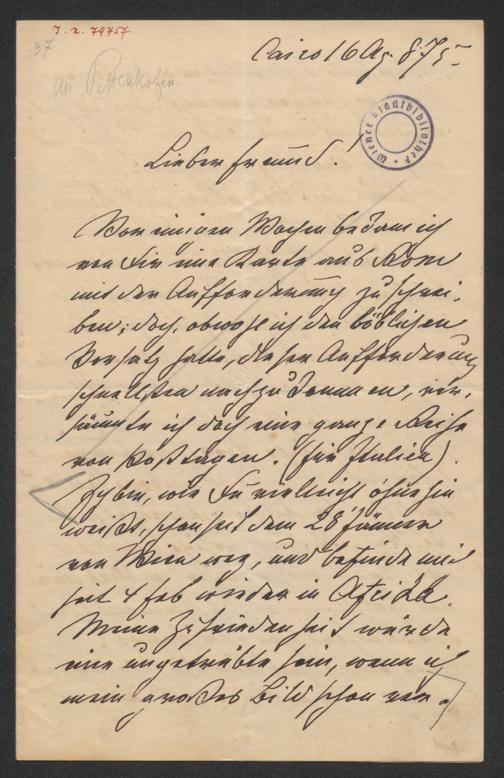 J. N. 79757
37
An Pettenkofen
Cairo 16 Ap. 875
Wiener Stadtbibliothek
Lieber Freund!
Vor einigen Wochen bekam ich
von Dir eine Karte aus Rom
mit der Aufforderung zu schrei-
ben; doch, obwohl ich den löblichen
Vorsatz hatte, dieser Aufforderung
schnellstens nachzukommen, ver-
säumte ich doch eine ganze Reihe
von Posttagen. (für Italien).
Ich bin, wie Du vielleicht ohnehin
weißt, schon seit dem 28 Jänner
von Wien weg, und befinde mich
seit 4 Feb wieder in Afrika.
Meine Zufriedenheit würde
eine ungetrübte sein, wenn ich
mein großes Bild schon ver-